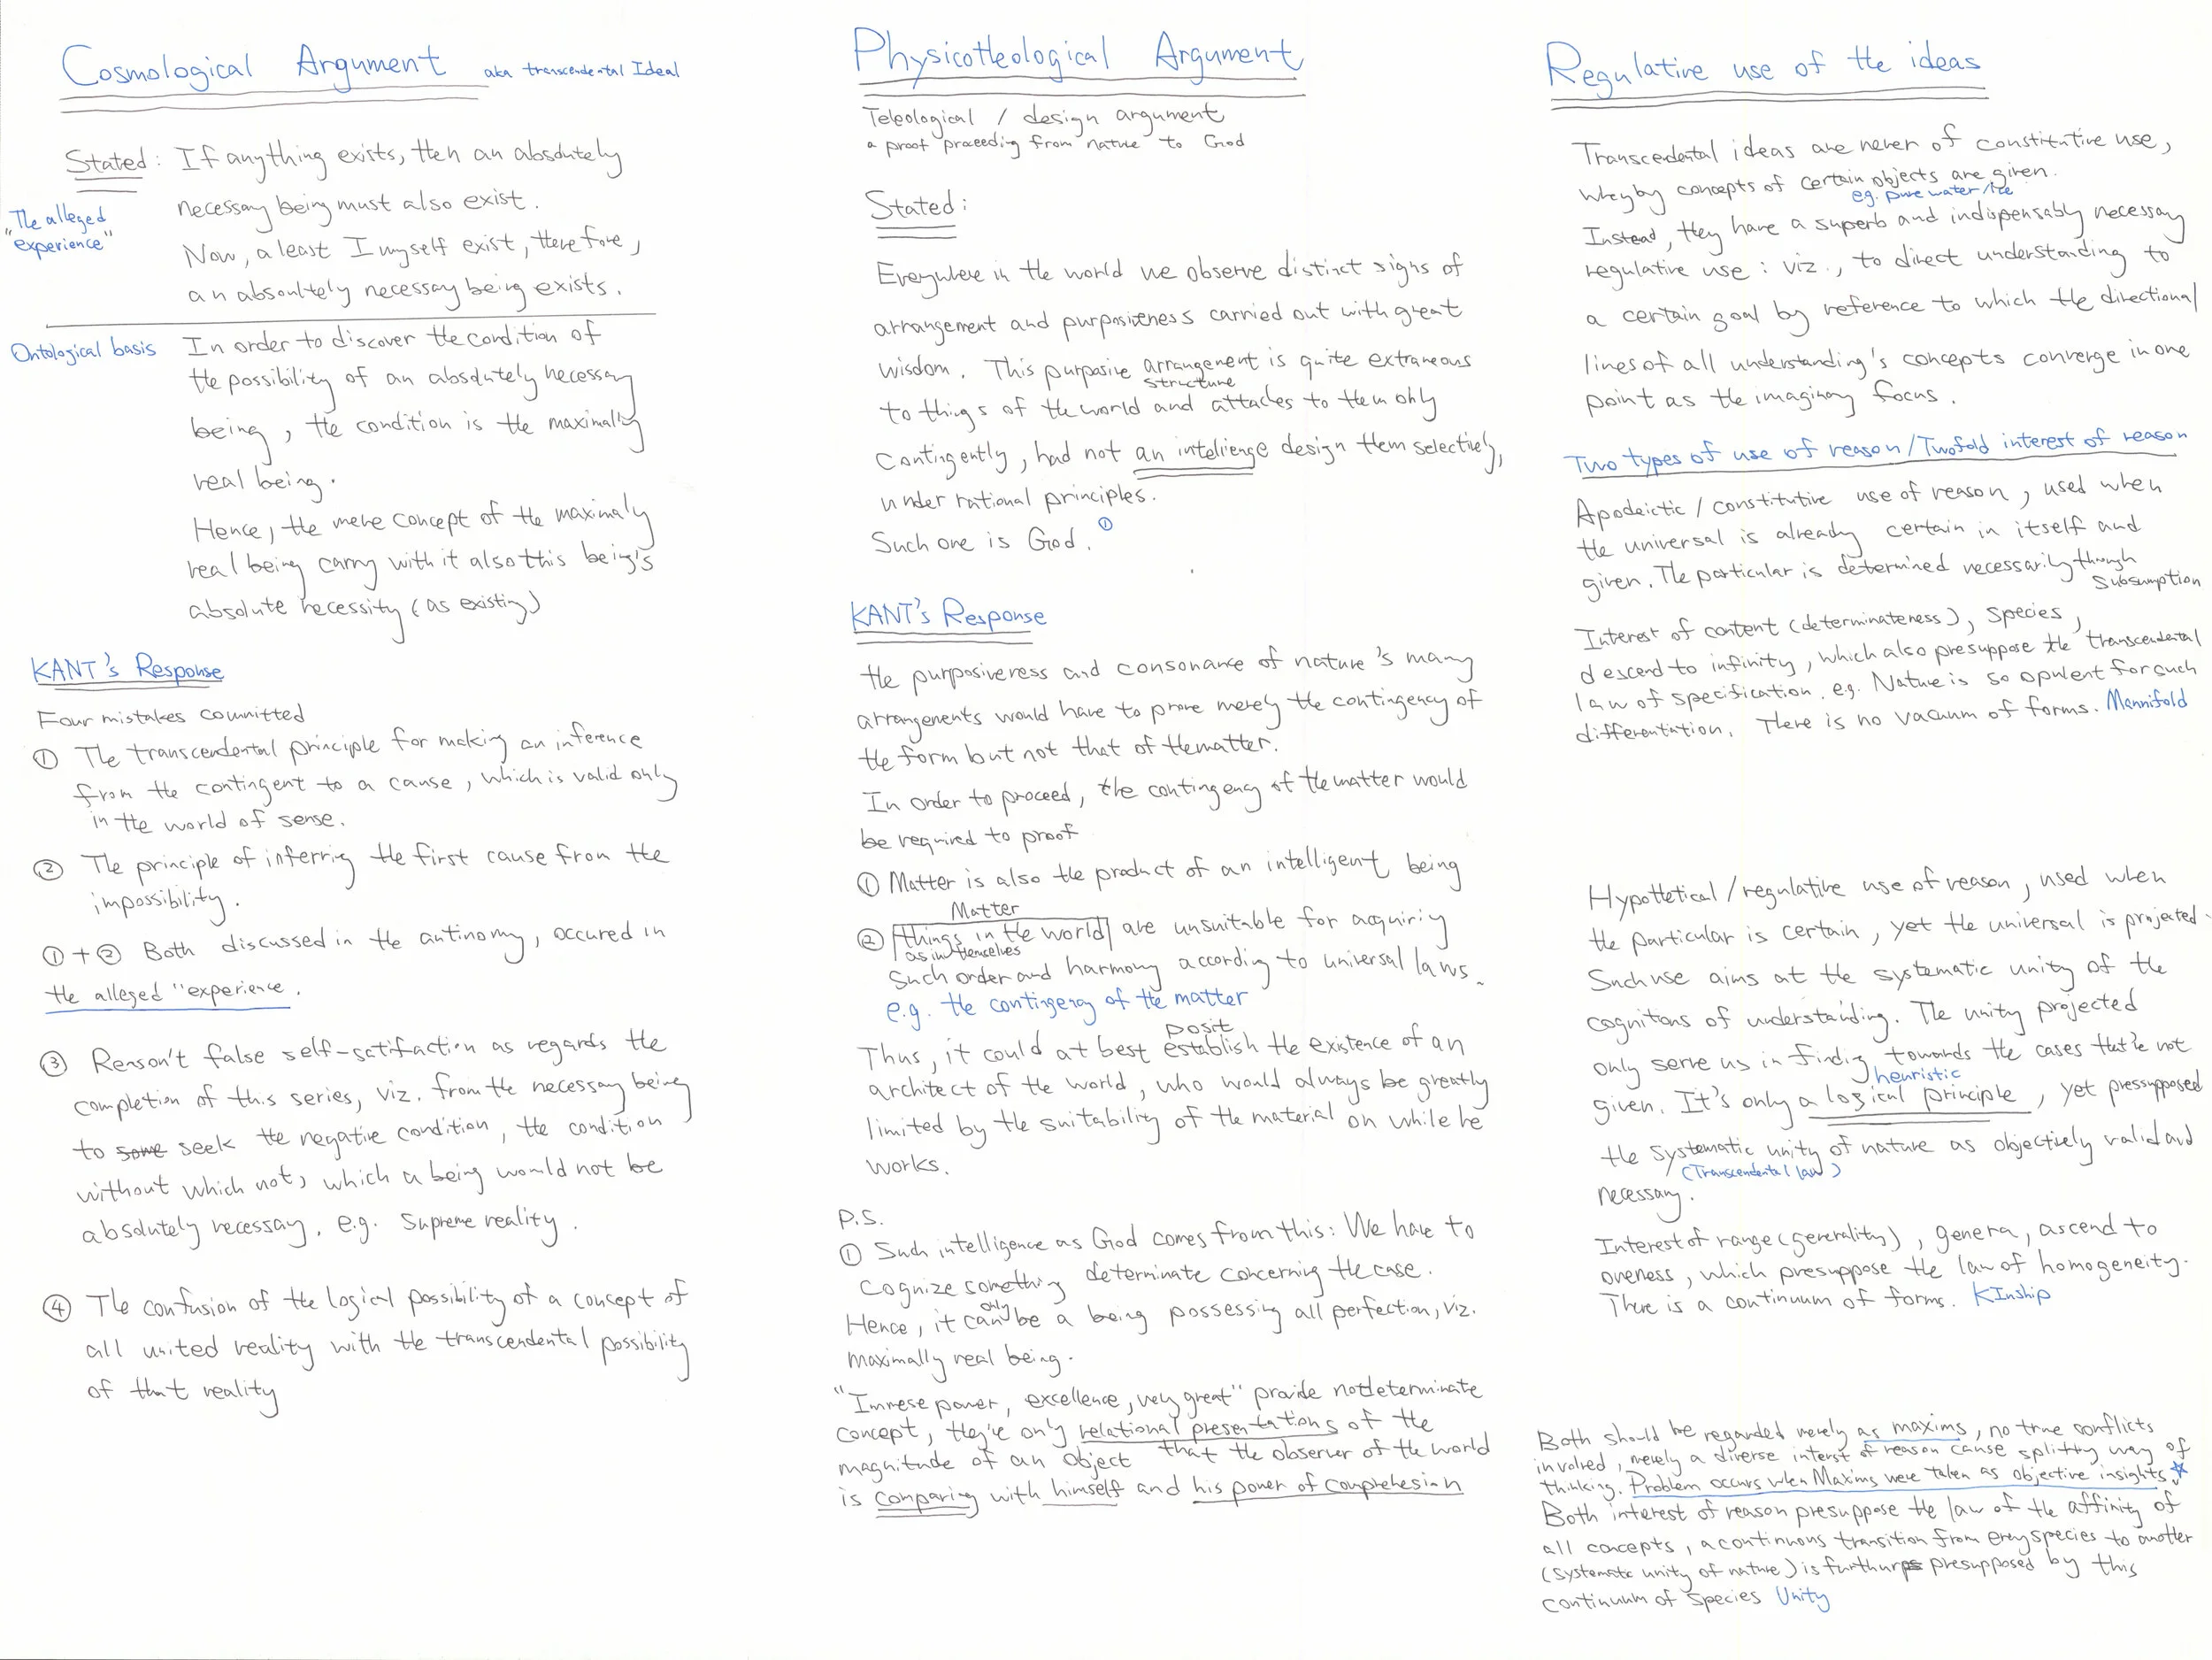 Cosmological Argument aka transcendental Ideal
Stated: If anything exists, then an absolutely
necessary being must also exist.
"The alleged
"experience"
Now, a least I myself exist, therefore,
an absoultely necessay being exists.
Ontological basis
In order to discover the condition of
the possibility of an absolutely necessary
being, the condition is the maximally
real being.
Hence, the mere concept of the maximaly
real being carry with it also this being's
absolute necessity (as existing)
KANT's Response
Four mistakes committed
① The transcendental principle for making an inference
from the contingent to a cause, which is valid only
in the world of sense.
② The principle of inferring the first cause from the
impossibility.
①+② Both discussed in the antinomy, occured in
the alleged "experience.
③ Reason't false self-satifaction as regards the
completion of this series, viz. from the necessay being
to some seek the negative condition, the condition
without which not, which a being would not be
absolutely necessay. e.g. Supreme reality.
④ The confusion of the logical possibility of a concept of
all united reality with the transcendental possibility
of that reality
Physicotheological Argument
Teleological / design argument
a proof proceeding from nature to God
Stated:
Everywhere in the world we observe distinct signs of
arrangement and purposiveness carried out with great
wisdom. This purposive arrangement is quite extraneous
structure
to things of the world and attaches to them only
Contingently, had not an intelienge design them selectively,
under rational principles.
Such one is God. ①
KANT's Response
the purposiveness and consonance of nature's many
arrangements would have to prove merely the contingency of
the form but not that of the matter.
In order to proceed, the contingency of the matter would
be required to proof
① Matter is also the product of an intelligent being
Matter
② things in the world are unsuitable for acquiring
as in themselves
Such order and harmony according to universal laws.
e.g. the contingency of the matter
posit
Thus, it could at best establish the existence of an
architect of the world, who would always be greatly
limited by the suitability of the material on while he
works.
P.S.
① Such intelligence as God comes from this: We have to
cognize something determinate concerning the case.
only
Hence, it can be a being possessing all perfection, viz.
maximally real being.
"Immese power, excellence, very great" provide not determinate
concept, they're only relational presentations of the
magnitude of an object that the observer of the world
is comparing with himself and his power of comprehesion
Regulative use of the ideas
Transcedental ideas are never of constitutive use,
whey by concepts of certain objects are given.
eg. pure water/
Instead, they have a superb and indispensably necessary
regulative use: viz., to direct understanding to
a certain goal by reference to which the directional
lines of all understanding's concepts converge in one
point as the imaginary focus.
Two types of use of reason/Twofold interest of reason
Apodeictic / constitutive use of reason, used when
the universal is already certain in itself and
given. The particular is determined necessarily through
subsumption
Interest of content (determinateness), species,
descend to infinity, which also presuppose the transcendental
law of specification. e.g. Nature is so opulent for such
differentiation. There is no vacuum of forms. Mannifold
Hypothetical / regulative use of reason, used when
the particular is certain, yet the universal is projected.
Such use aims at the systematic unity of the
cognitions of understanding. The unity projected
only serve us in finding towards the cases that're not
heuristic
given. It's only a logical principle, yet pressupposed
the systematic unity of nature as objectively valid and
(Transcendental law)
necessary.
Interest of range (generality), genera, ascend to
oneness, which presuppose the law of homogeneity.
There is a continuum of forms. KInship
Both should be regarded merely as maxims, no true conflicts
involved, merely a diverse interst of reason cause splitting way of
thinking. Problem occurs when Maxims were taken as objective insights.
Both interest of reason presuppose the law of the affinity of
all concepts, a continuous transition from every species to another
(systematic unity of nature) is furthur presupposed by this
continuum of species Unity